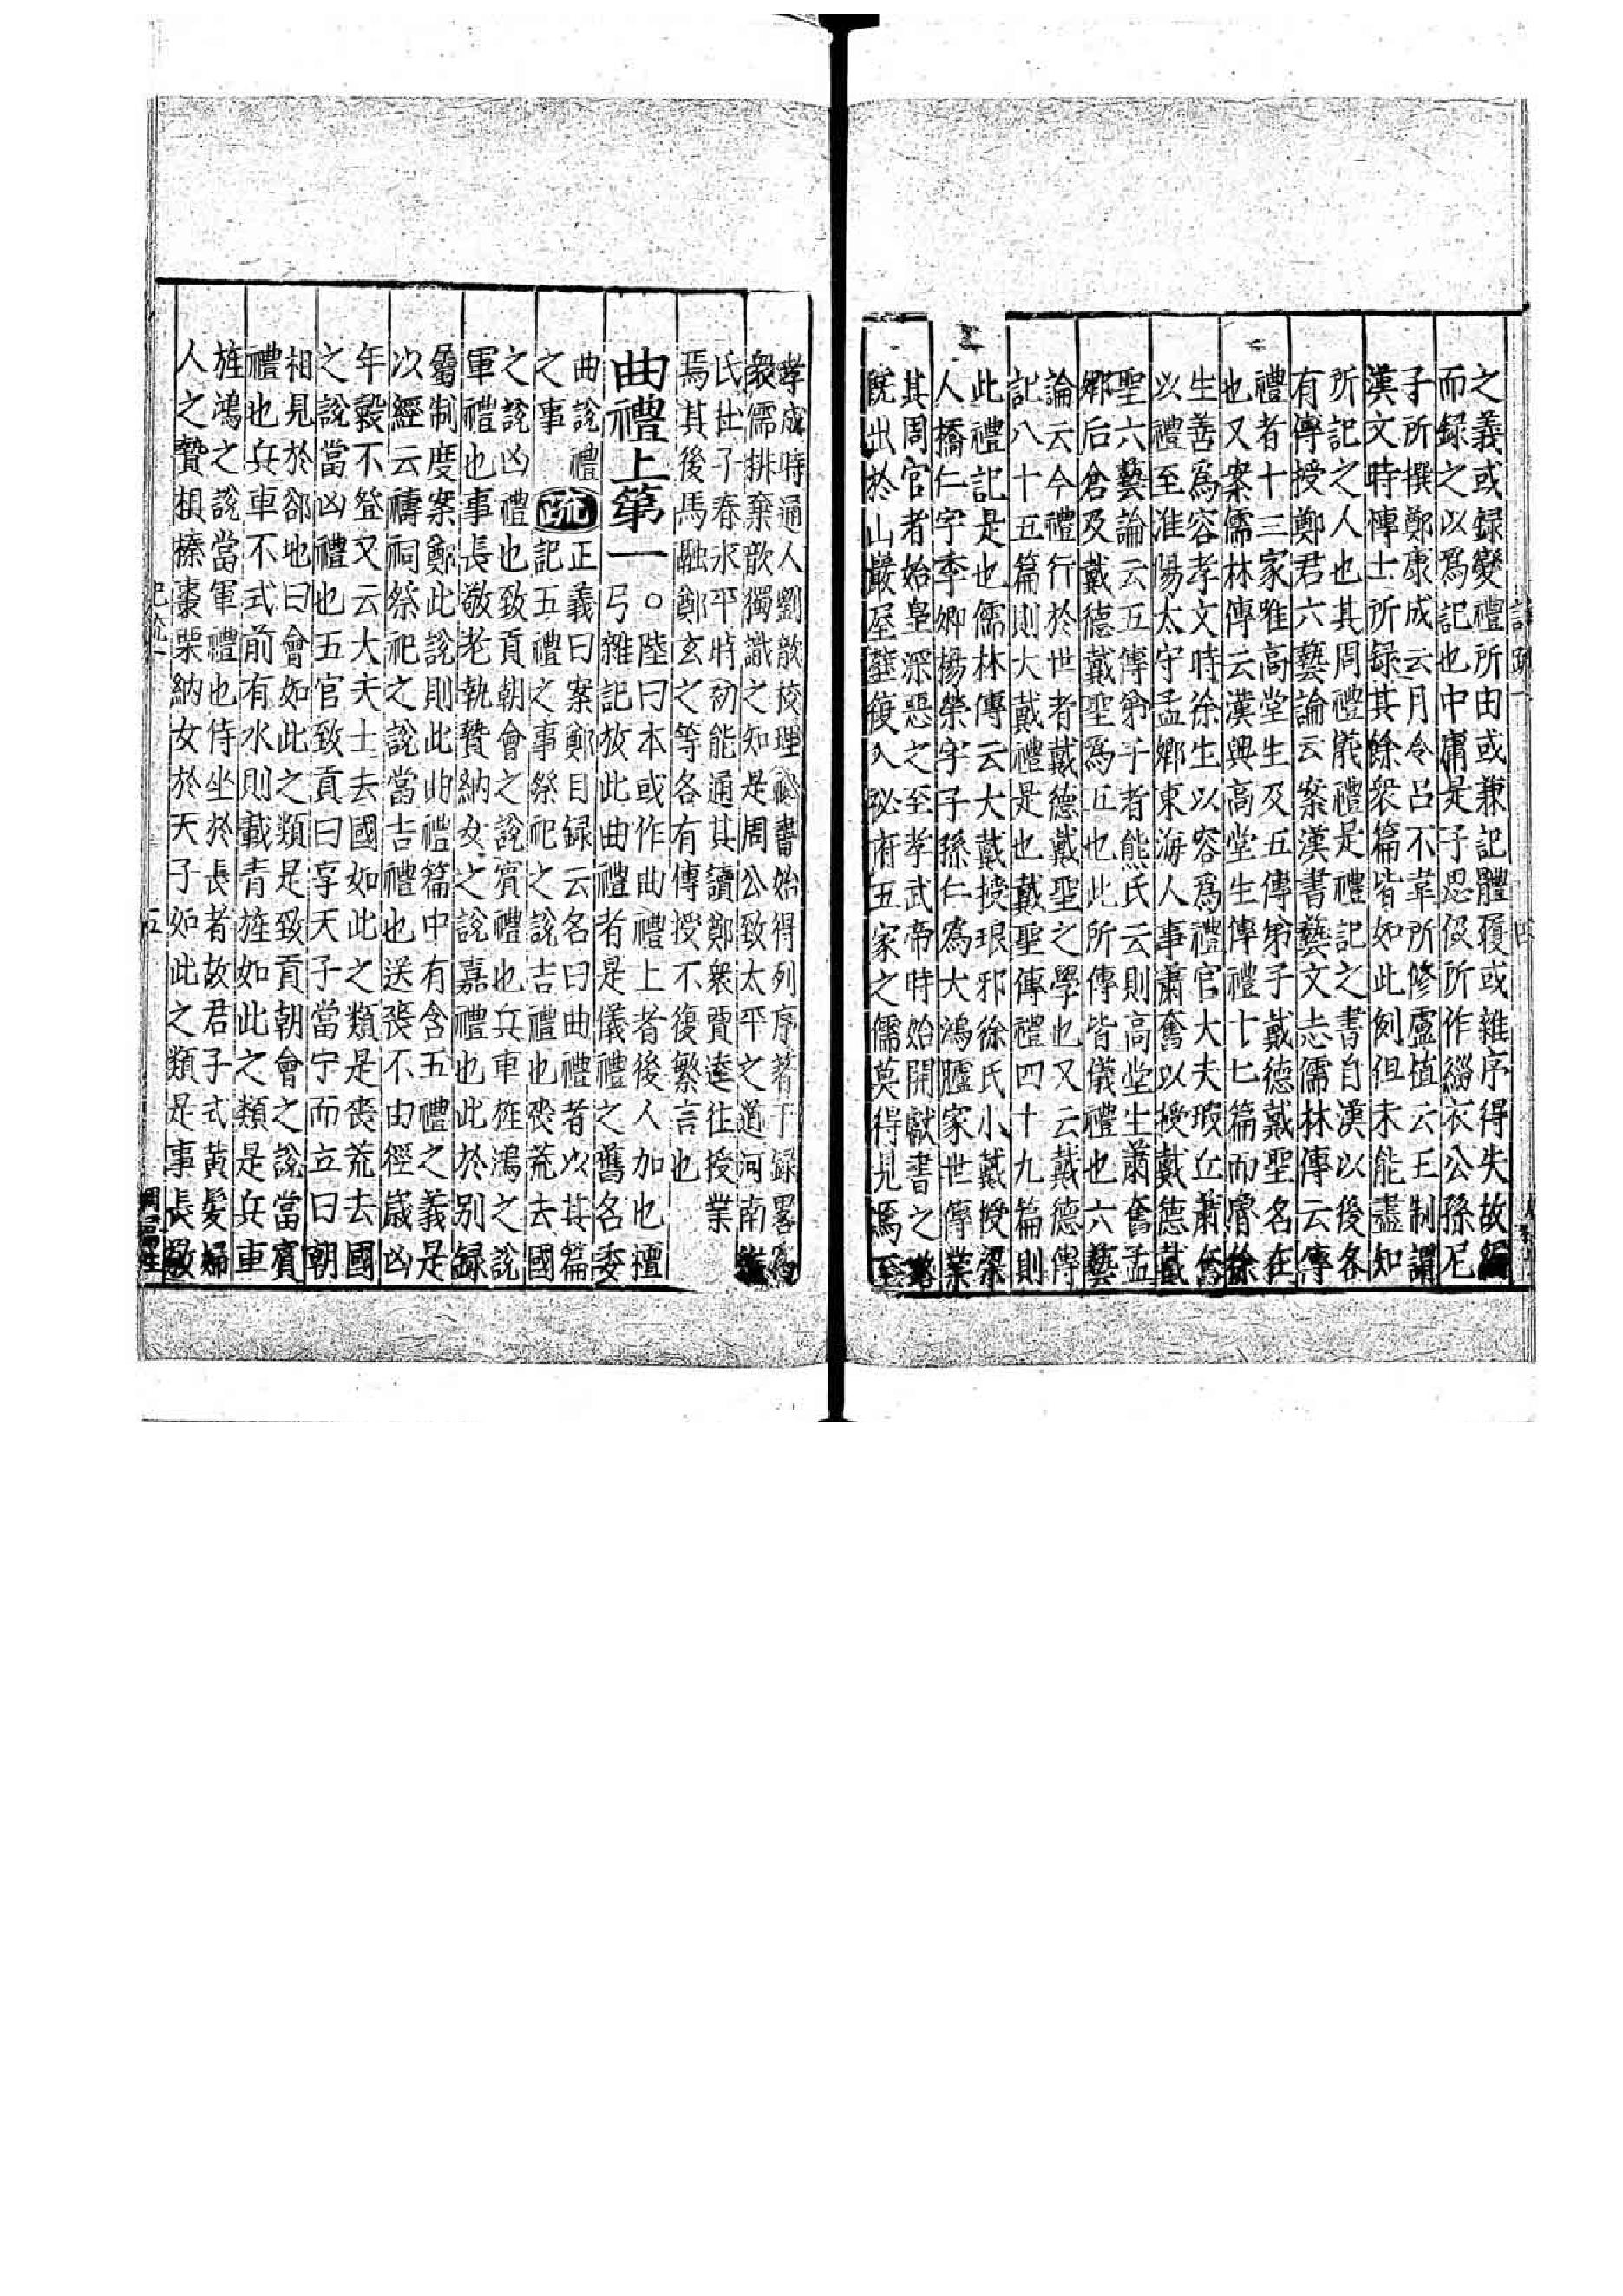 之義或録變禮所由或兼記體履或雜序得失故編
而録之以爲記也中庸是子思伋所作緇衣公孫尼
子所撰鄭康成云月令呂不韋所修盧植云王制謂
漢文時博士所録其餘衆篇皆如此例但未能盡知
所記之人也其周禮儀禮是禮記之書自漢以後各
有傳授鄭君六藝論云案漢書藝文志儒林傳云傳
禮者十三家唯高堂生及五傳弟子戴德戴聖名在
也又案儒林傳云漢興高堂生傳禮十七篇而魯徐
生善爲容孝文時徐生以容爲禮官大夫瑕丘蕭奮
以禮至淮陽太守孟鄉東海人事蕭奮以授戴德戴
聖六藝論云五傳弟子者熊氏云則高堂生蕭奮孟
鄉后倉及戴德戴聖爲五也此所傳皆儀禮也六藝
論云今禮行於世者戴德戴聖之學也又云戴德傳
記八十五篇則大戴禮是也戴聖傳禮四十九篇則
此禮記是也儒林傳云大戴授琅邪徐氏小戴授梁
人橋仁字季卿楊榮字子孫仁爲大鴻臚家世傳業
其周官者始皇深惡之至孝武帝時始開獻書之路
旣出於山巖屋壁復入祕府五家之儒莫得見焉至
孝成時通人劉歆校理祕書始得列序著于録畧爲
衆儒排棄歆獨識之知是周公致太平之道河南
氏杜子春永平時初能通其讀鄭衆賈逵往授業
焉其後馬融鄭玄之等各有傳授不復繁言也
曲禮上第一
○陸曰本或作曲禮上者後人加也檀
弓雜記放此曲禮者是儀禮之舊名委
曲說禮
之事
疏
正義曰案鄭目録云名曰曲禮者以其篇
記五禮之事祭祀之說吉禮也喪荒去國
之說凶禮也致貢朝會之說賓禮也兵車旌鴻之說
軍禮也事長敬老執贄納女之說嘉禮也此於别録
屬制度案鄭此說則此曲禮篇中有含五禮之義是
以經云禱祠祭祀之說當吉禮也送喪不由徑歲凶
年穀不登又云大夫士去國如此之類是喪荒去國
之說當凶禮也五官致貢曰享天子當宁而立曰朝
相見於郤地曰會如此之類是致貢朝會之說當賓
禮也兵車不式前有水則載青旌如此之類是兵車
旌鴻之說當軍禮也侍坐於長者故君子式黃髮婦
人之贄椇榛棗栗納女於天子如此之類是事長敬
記疏一
五